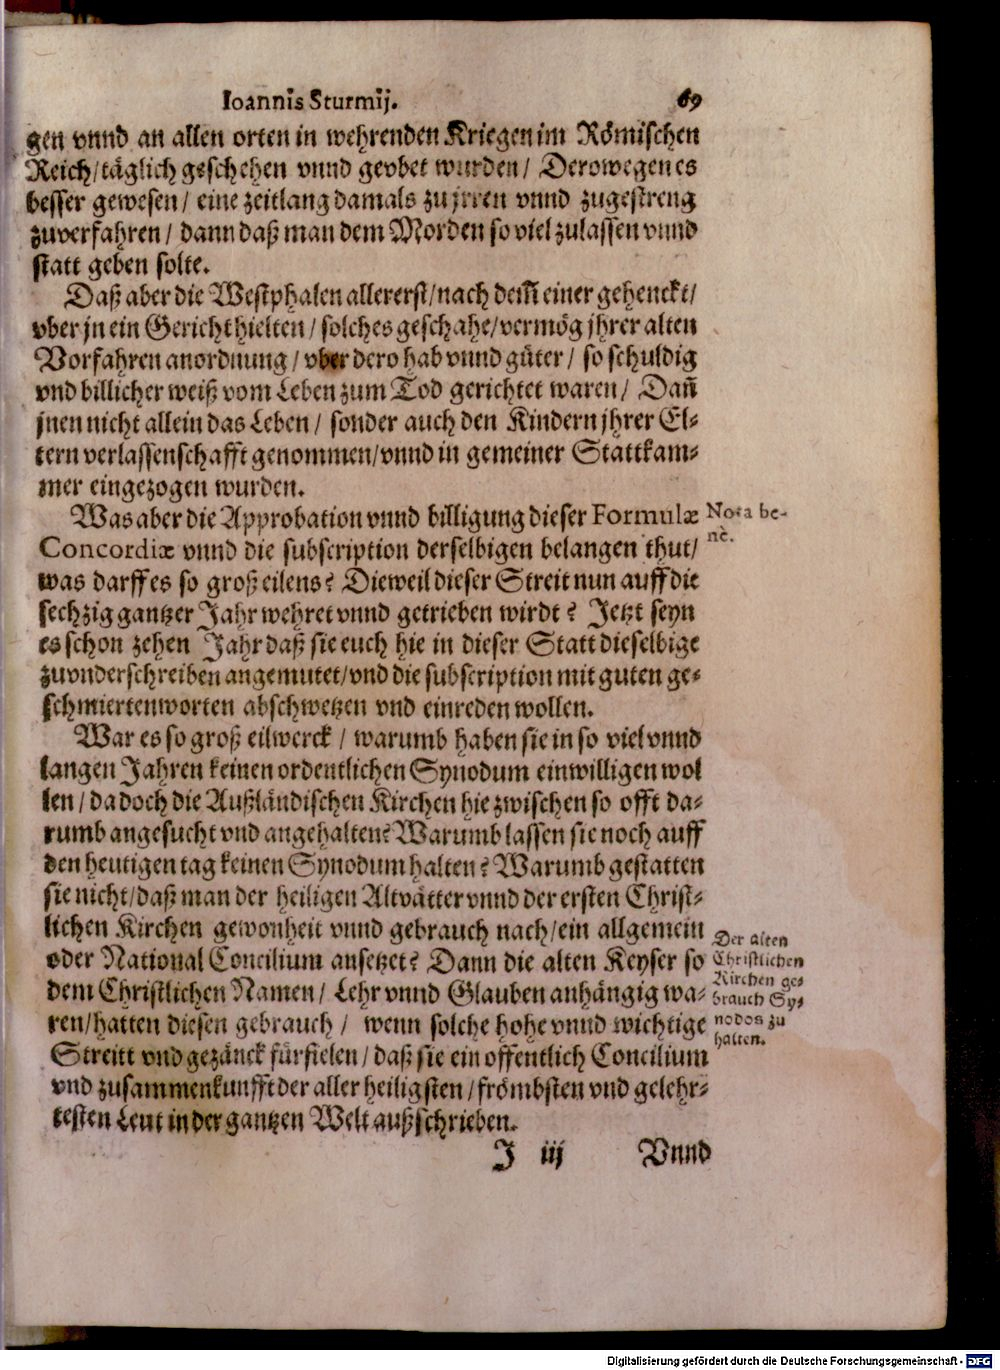 Ioannis Sturmij. 69
gen vnnd an allen orten in wehrenden Kriegen im Römischen
Reich/täglich geschehen vnnd gevbet wurden/ Derowegen es
besser gewesen/ eine zeitlang damals zu jrren vnnd zugestreng
zuverfahren/ dann daß man dem Morden so viel zulassen vnnd
statt geben solte.
Daß aber die Westphalen allererst/nach dem̃ einer gehenckt/
vber jn ein Gericht hielten/ solches geschahe/vermög jhrer alten
Vorfahren anordnung/ vber dero hab vnnd güter/ so schuldig
vnd billicher weiß vom Leben zum Tod gerichtet waren/ Dañ
jnen nicht allein das Leben/ sonder auch den Kindern jhrer El-
tern verlassenschafft genommen/vnnd in gemeiner Stattkam-
mer eingezogen wurden.
Was aber die Approbation vnnd billigung dieser Formulæ
Concordiæ vnnd die subscription derselbigen belangen thut/
was darff es so groß eilens? Dieweil dieser Streit nun auff die
sechzig gantzer Jahr wehret vnnd getrieben wirdt? Jetzt seyn
es schon zehen Jahr daß sie euch hie in dieser Statt dieselbige
zuvnderschreiben angemutet/vnd die subscription mit guten ge-
schmierten worten abschwetzen vnd einreden wollen.
War es so groß eilwerck/ warumb haben sie in so viel vnnd
langen Jahren keinen ordentlichen Synodum einwilligen wol
len/ da doch die Außländischen Kirchen hiezwischen so offt da-
rumb angesucht vnd angehalten? Warumb lassen sie noch auff
den heutigen tag keinen Synodum halten? Warumb gestatten
sie nicht/daß man der heiligen Altvätter vnnd der ersten Christ-
lichen Kirchen gewonheit vnnd gebrauch nach/ein allgemein
oder National Concilium ansetzet? Dann die alten Keyser so
dem Christlichen Namen/ Lehr vnnd Glauben anhängig wa-
ren/hatten diesen gebrauch/ wenn solche hohe vnnd wichtige
Streitt vnd gezänck fürfielen/ daß sie ein offentlich Concilium
vnd zusammenkunfft der aller heiligsten/ frömbsten vnd gelehr-
testen Leut in der gantzen Welt außschrieben.
J iij Vnnd
Nota be-
nè.
Der alten
Christlichen
Kirchen ge-
brauch Sy-
nodos zu
halten.
Digitalisierung gefördert durch die Deutsche Forschungsgemeinschaft - DFG